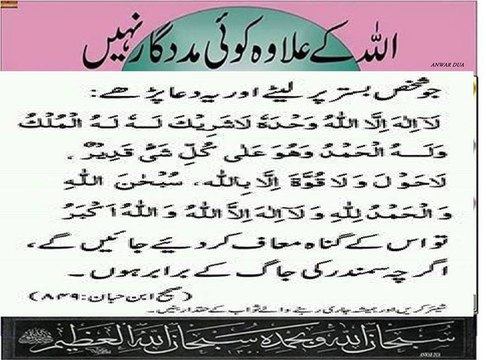 اللہ کے علاوہ کوئی مددگار نہیں
ANWAR DUA
جو شخص بستر پر لیٹے اور یہ دعا پڑھے:
لَا اِلٰهَ اِلَّا اللهُ وَحْدَهٗ لَا شَرِيْكَ لَهٗ لَهُ الْمُلْكُ
وَلَهُ الْحَمْدُ وَهُوَ عَلٰى كُلِّ شَیْءٍ قَدِيْرٌ،
لَاحَوْلَ وَلَا قُوَّةَ اِلَّا بِاللهِ، سُبْحٰنَ اللهِ
وَالْحَمْدُ لِلّٰهِ وَلَا اِلٰهَ اِلَّا اللهُ وَاللهُ اَكْبَرُ
تو اس کے گناہ معاف کر دیئے جائیں گے،
اگرچہ سمندر کی جاگ کے برابر ہوں۔
(صحیح ابن حبان: ۸۴۹)
شیئر کریں اور ہمیشہ جاری رہنے والے ثواب کے حقدار بنیں۔
سبحان الله وبحمده سبحان الله العظيم
ANWAR DUA